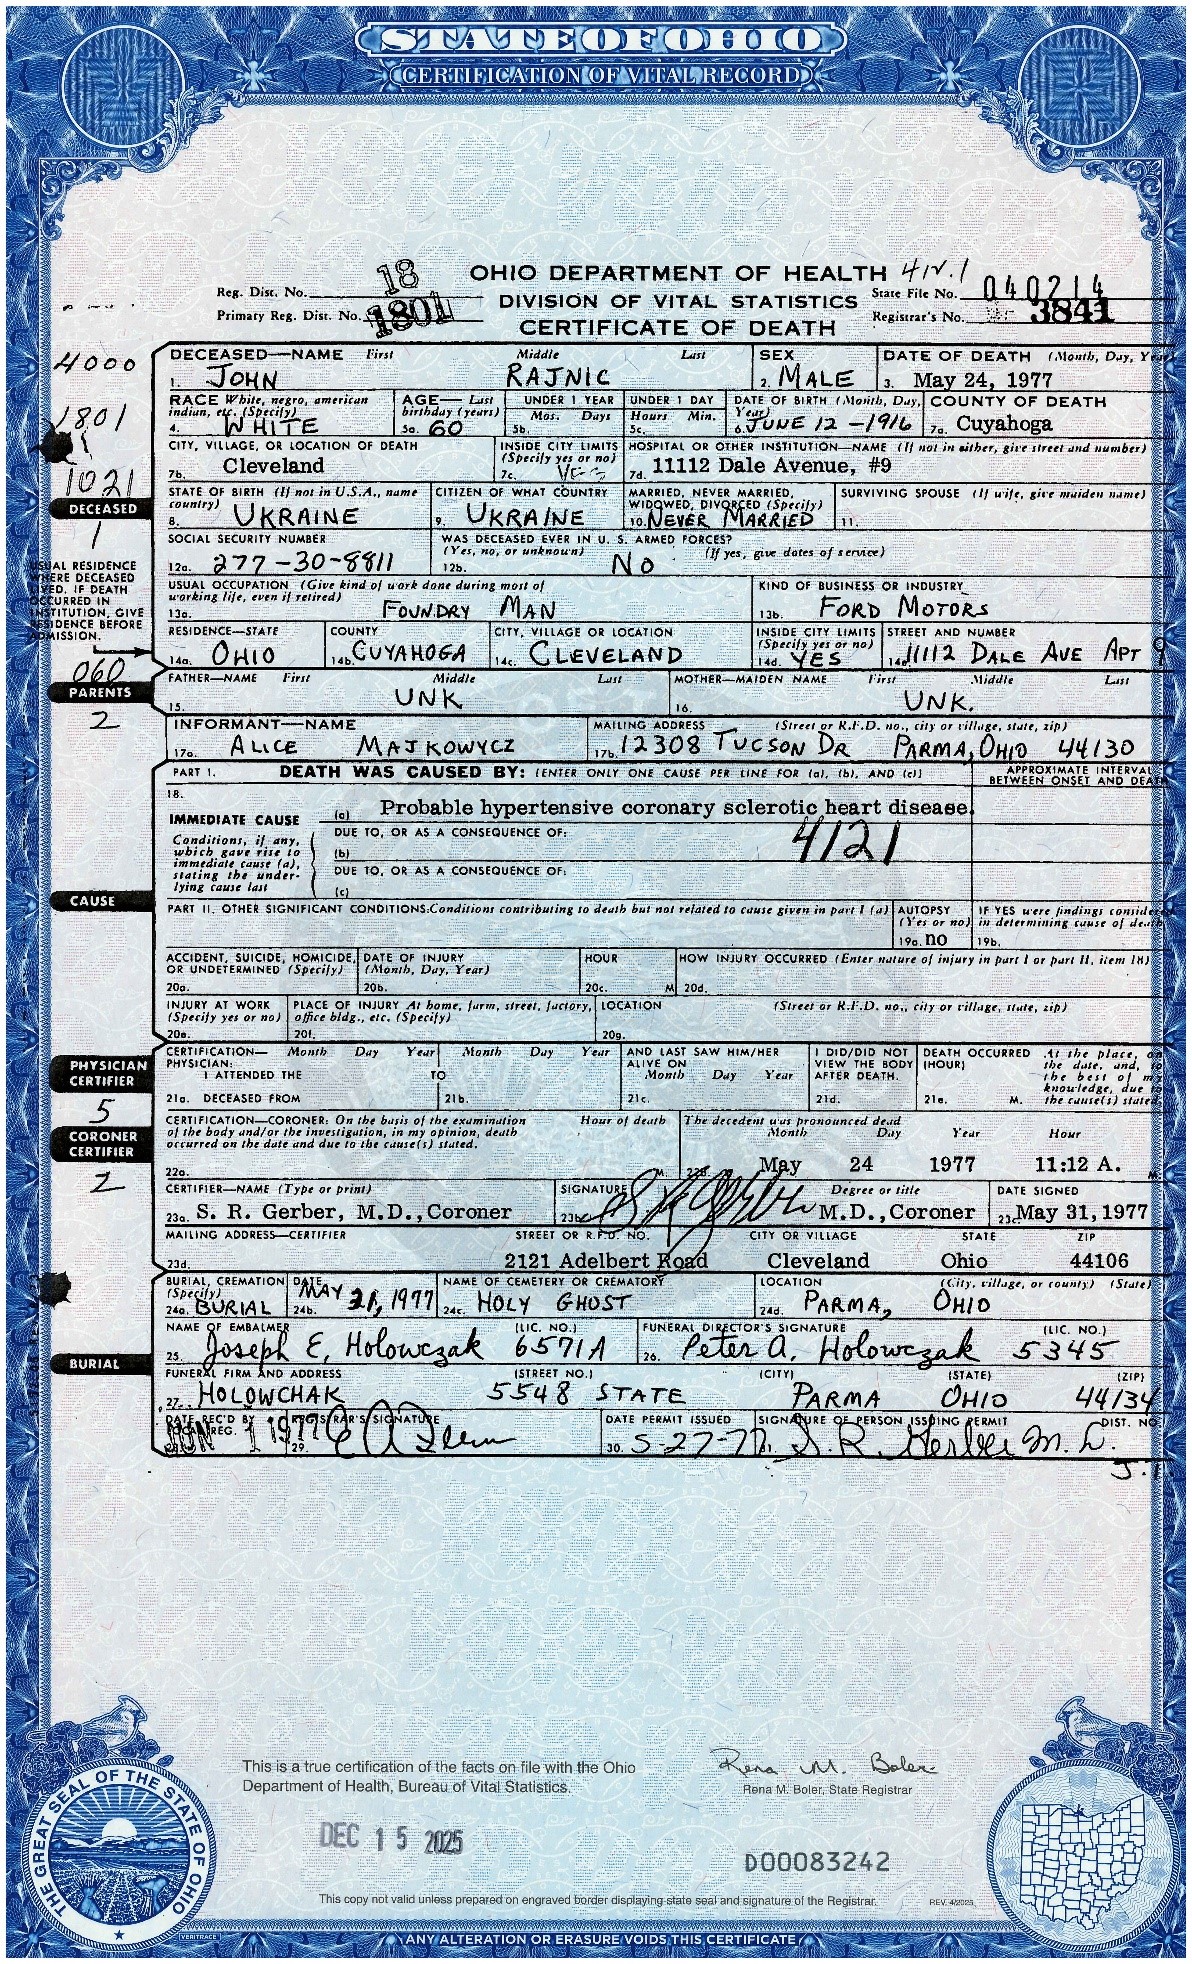 STATE OF OHIO
CERTIFICATION OF VITAL RECORD
OHIO DEPARTMENT OF HEALTH
DIVISION OF VITAL STATISTICS
CERTIFICATE OF DEATH
Reg. Dist. No. 18
Primary Reg. Dist. No. 1801
State File No. 040214
Registrar's No. 3841
4000
1801
1021
DECEASED
1
USUAL RESIDENCE WHERE DECEASED LIVED. IF DEATH OCCURRED IN INSTITUTION, GIVE RESIDENCE BEFORE ADMISSION.
060
PARENTS
2
DECEASED—NAME First Middle Last
1. JOHN RAJNIC
SEX
2. MALE
DATE OF DEATH (Month, Day, Year)
3. May 24, 1977
RACE White, negro, american indian, etc. (Specify)
4. WHITE
AGE— Last birthday (years)
5a. 60
UNDER 1 YEAR
Mos. Days
5b.
UNDER 1 DAY
Hours Min.
5c.
DATE OF BIRTH (Month, Day, Year)
6. JUNE 12 -1916
COUNTY OF DEATH
7a. Cuyahoga
CITY, VILLAGE, OR LOCATION OF DEATH
7b. Cleveland
INSIDE CITY LIMITS (Specify yes or no)
7c. Yes
HOSPITAL OR OTHER INSTITUTION—NAME (If not in either, give street and number)
7d. 11112 Dale Avenue, #9
STATE OF BIRTH (If not in U.S.A., name country)
8. UKRAINE
CITIZEN OF WHAT COUNTRY
9. UKRAINE
MARRIED, NEVER MARRIED, WIDOWED, DIVORCED (Specify)
10. NEVER MARRIED
SURVIVING SPOUSE (If wife, give maiden name)
11.
SOCIAL SECURITY NUMBER
12a. 277-30-8811
WAS DECEASED EVER IN U. S. ARMED FORCES?
(Yes, no, or unknown) (If yes, give dates of service)
12b. NO
USUAL OCCUPATION (Give kind of work done during most of working life, even if retired)
13a. FOUNDRY MAN
KIND OF BUSINESS OR INDUSTRY
13b. FORD MOTORS
RESIDENCE—STATE
14a. OHIO
COUNTY
14b. CUYAHOGA
CITY, VILLAGE OR LOCATION
14c. CLEVELAND
INSIDE CITY LIMITS (Specify yes or no)
14d. YES
STREET AND NUMBER
14e. 11112 DALE AVE APT 9
FATHER—NAME First Middle Last
15. UNK
MOTHER—MAIDEN NAME First Middle Last
16. UNK.
INFORMANT—NAME
17a. ALICE MAJKOWYCZ
MAILING ADDRESS (Street or R.F.D. no., city or village, state, zip)
17b. 12308 TUCSON DR PARMA, OHIO 44130
PART I. DEATH WAS CAUSED BY: [ENTER ONLY ONE CAUSE PER LINE FOR (a), (b), AND (c)]
APPROXIMATE INTERVAL BETWEEN ONSET AND DEATH
18.
IMMEDIATE CAUSE
(a) Probable hypertensive coronary sclerotic heart disease.
Conditions, if any, which gave rise to immediate cause (a), stating the underlying cause last
DUE TO, OR AS A CONSEQUENCE OF:
4121
(b)
DUE TO, OR AS A CONSEQUENCE OF:
(c)
CAUSE
PART II. OTHER SIGNIFICANT CONDITIONS: Conditions contributing to death but not related to cause given in part I (a)
AUTOPSY (Yes or no)
19a. no
IF YES were findings considered in determining cause of death
19b.
ACCIDENT, SUICIDE, HOMICIDE, OR UNDETERMINED (Specify)
20a.
DATE OF INJURY (Month, Day, Year)
20b.
HOUR
20c. M
HOW INJURY OCCURRED (Enter nature of injury in part I or part II, item 18)
20d.
INJURY AT WORK (Specify yes or no)
20e.
PLACE OF INJURY At home, farm, street, factory, office bldg., etc. (Specify)
20f.
LOCATION (Street or R.F.D. no., city or village, state, zip)
20g.
PHYSICIAN CERTIFIER
5
CORONER CERTIFIER
2
CERTIFICATION— Month Day Year Month Day Year
PHYSICIAN:
I ATTENDED THE TO
21a. DECEASED FROM 21b.
AND LAST SAW HIM/HER ALIVE ON
Month Day Year
21c.
I DID/DID NOT VIEW THE BODY AFTER DEATH.
21d.
DEATH OCCURRED (HOUR)
21e. M.
At the place, on the date, and, to the best of my knowledge, due to the cause(s) stated.
CERTIFICATION—CORONER: On the basis of the examination of the body and/or the investigation, in my opinion, death occurred on the date and due to the cause(s) stated.
Hour of death
22a. M.
The decedent was pronounced dead
Month Day Year Hour
22b. May 24 1977 11:12 A. M.
CERTIFIER—NAME (Type or print)
23a. S. R. Gerber, M.D., Coroner
SIGNATURE Degree or title
23b. M.D., Coroner
DATE SIGNED
23c. May 31, 1977
MAILING ADDRESS—CERTIFIER STREET OR R.F.D. NO. CITY OR VILLAGE STATE ZIP
23d. 2121 Adelbert Road Cleveland Ohio 44106
BURIAL, CREMATION (Specify)
24a. BURIAL
DATE
24b. MAY 21, 1977
NAME OF CEMETERY OR CREMATORY
24c. HOLY GHOST
LOCATION (City, village, or county) (State)
24d. PARMA, OHIO
BURIAL
NAME OF EMBALMER (LIC. NO.)
25. Joseph E. Holowczak 6571A
FUNERAL DIRECTOR'S SIGNATURE (LIC. NO.)
26. Peter A. Holowczak 5345
FUNERAL FIRM AND ADDRESS (STREET NO.) (CITY) (STATE) (ZIP)
27. HOLOWCHAK 5548 STATE PARMA OHIO 44134
DATE REC'D BY LOCAL REG.
28. JUN 1 1977
REGISTRAR'S SIGNATURE
29.
DATE PERMIT ISSUED
30. 5-27-77
SIGNATURE OF PERSON ISSUING PERMIT DIST. NO.
31. S. R. Gerber M. D.
This is a true certification of the facts on file with the Ohio
Department of Health, Bureau of Vital Statistics.
Rena M. Boler
Rena M. Boler, State Registrar
DEC 15 2025
D00083242
This copy not valid unless prepared on engraved border displaying state seal and signature of the Registrar.
REV. 4/2025
THE GREAT SEAL OF THE STATE OF OHIO
VERITRACE
ANY ALTERATION OR ERASURE VOIDS THIS CERTIFICATE